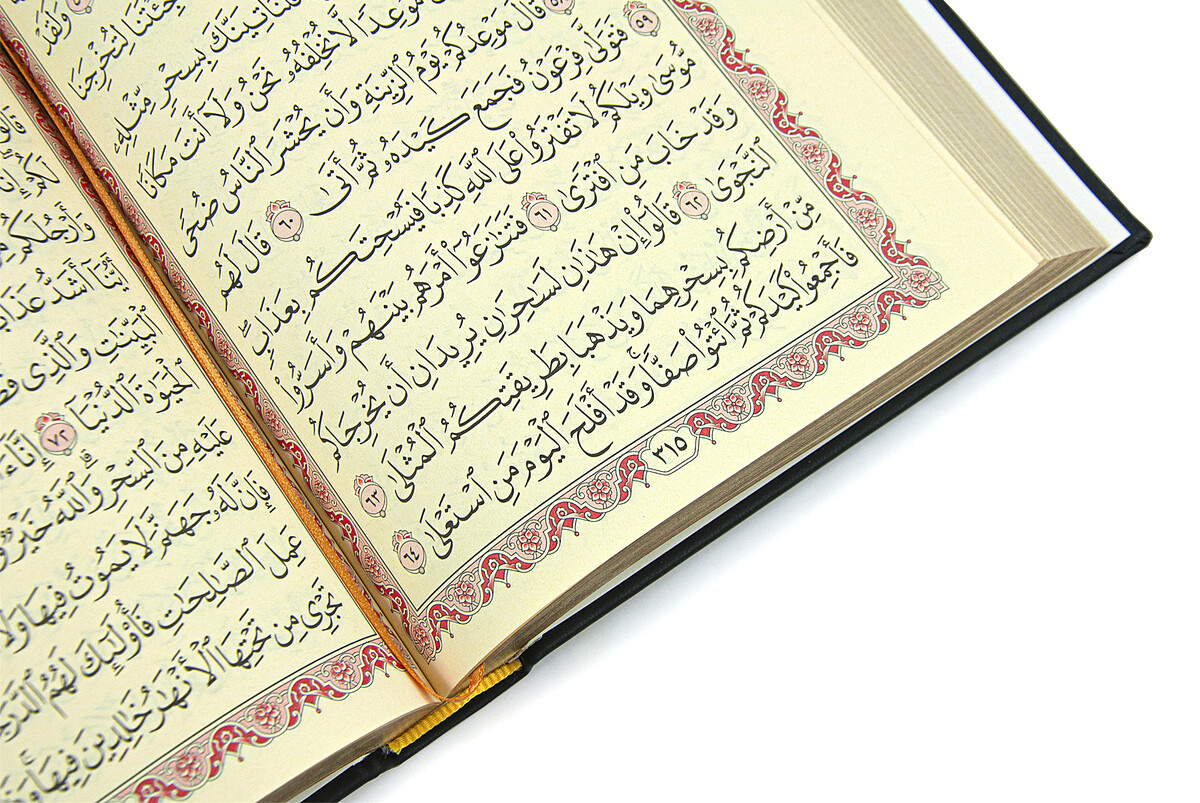 وَلَقَدْ
جِئْتَنَا لِتُخْرِجَنَا
فَلَنَأْتِيَنَّكَ بِسِحْرٍ مِّثْلِهِۦ
مَوْعِدًا لَّا نُخْلِفُهُۥ نَحْنُ وَلَآ أَنتَ مَكَانًا
٥٨ قَالَ مَوْعِدُكُمْ يَوْمُ ٱلزِّينَةِ وَأَن يُحْشَرَ ٱلنَّاسُ ضُحًى
٥٩ فَتَوَلَّىٰ فِرْعَوْنُ فَجَمَعَ كَيْدَهُۥ ثُمَّ أَتَىٰ ٦٠ قَالَ لَهُم
مُّوسَىٰ وَيْلَكُمْ لَا تَفْتَرُوا۟ عَلَى ٱللَّهِ كَذِبًا فَيُسْحِتَكُم بِعَذَابٍ ۖ
وَقَدْ خَابَ مَنِ ٱفْتَرَىٰ ٦١ فَتَنَٰزَعُوٓا۟ أَمْرَهُم بَيْنَهُمْ وَأَسَرُّوا۟
ٱلنَّجْوَىٰ ٦٢ قَالُوٓا۟ إِنْ هَٰذَٰنِ لَسَٰحِرَٰنِ يُرِيدَانِ أَن يُخْرِجَاكُم
مِّنْ أَرْضِكُم بِسِحْرِهِمَا وَيَذْهَبَا بِطَرِيقَتِكُمُ ٱلْمُثْلَىٰ ٦٣
فَأَجْمِعُوا۟ كَيْدَكُمْ ثُمَّ ٱئْتُوا۟ صَفًّا ۚ وَقَدْ أَفْلَحَ ٱلْيَوْمَ مَنِ ٱسْتَعْلَىٰ ٦٤
٣١٥
لَكُمْ إِنَّ
وَأَرْجُلَكُم
أَيُّنَآ أَشَدُّ عَذَابًا
ٱلْبَيِّنَٰتِ وَٱلَّذِى
ٱلْحَيَوٰةَ ٱلدُّنْيَآ ٧٢ إِنَّآ
عَلَيْهِ مِنَ ٱلسِّحْرِ ۗ وَٱللَّهُ خَيْرٌ
فَإِنَّ لَهُۥ جَهَنَّمَ لَا يَمُوتُ فِيهَا وَلَا
عَمِلَ ٱلصَّٰلِحَٰتِ فَأُو۟لَٰٓئِكَ لَهُمُ
تَجْرِى مِن تَحْتِهَا ٱلْأَنْهَٰرُ خَٰلِدِينَ فِيهَا ۚ